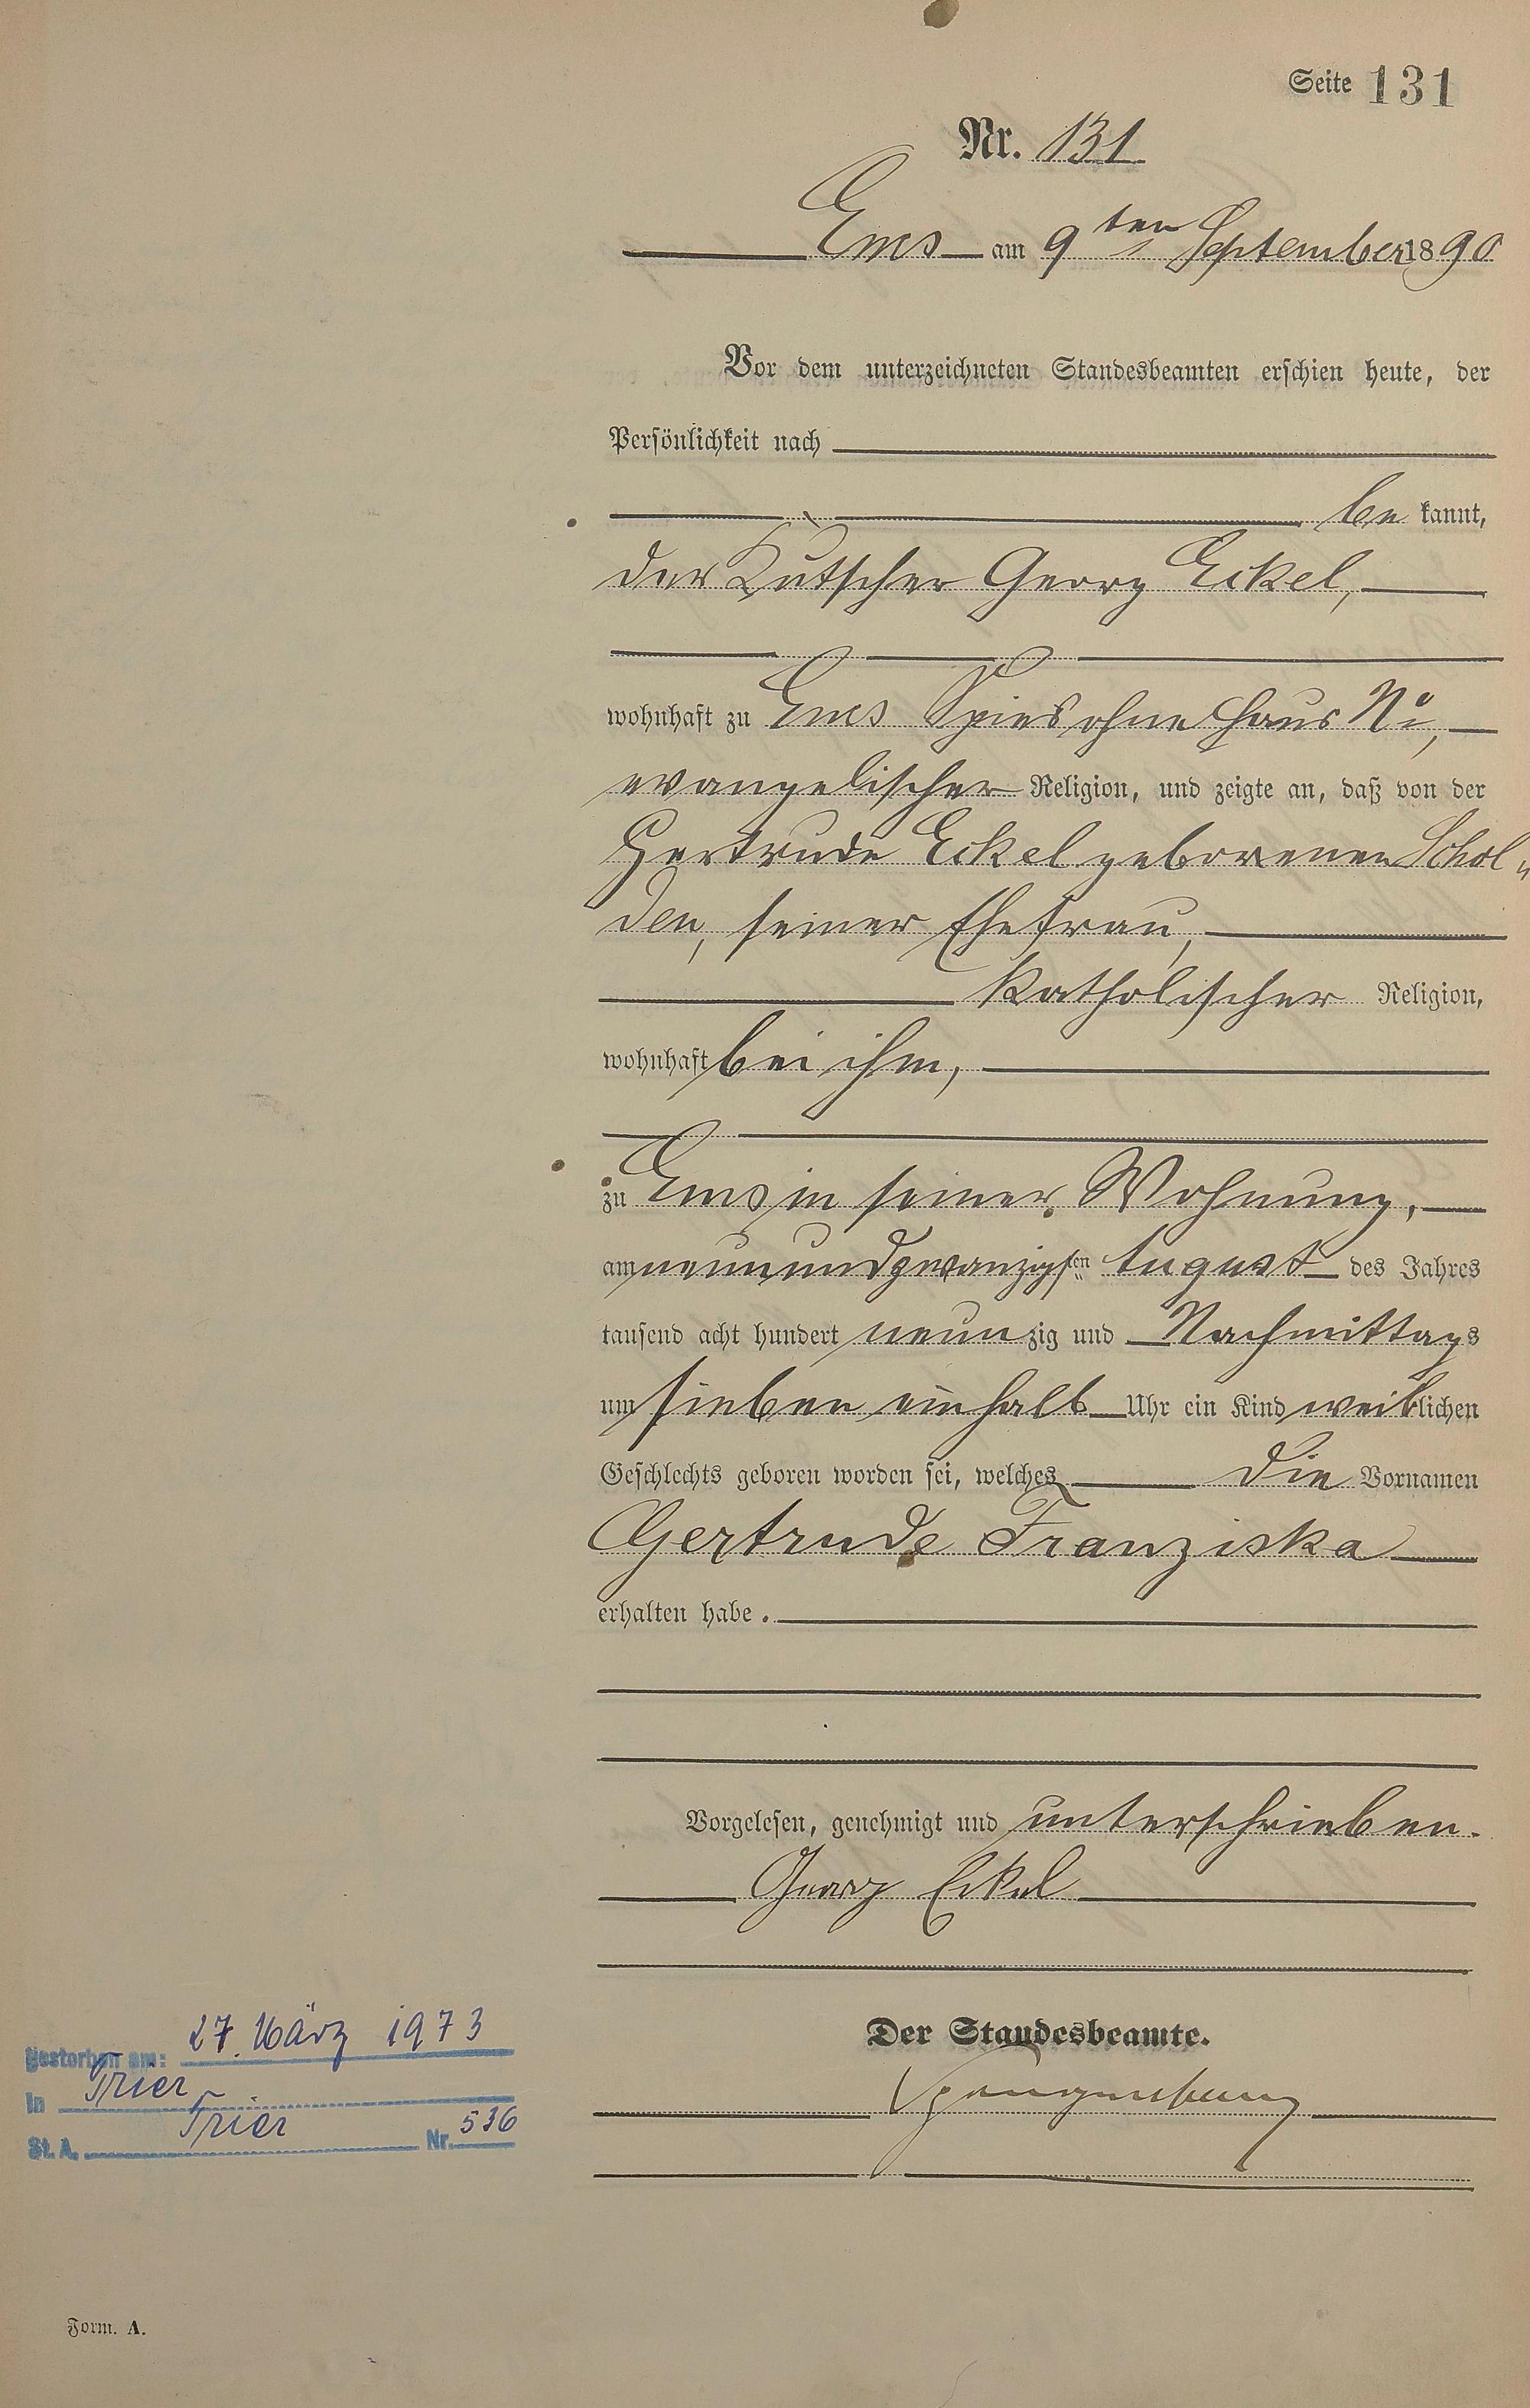 Seite 131
Nr. 131
Ems am 9ten September 1890
Vor dem unterzeichneten Standesbeamten erschien heute, der
Persönlichkeit nach
be kannt,
der Kutscher Georg Eckel,
wohnhaft zu Ems Spies ohne Haus No,
evangelischer Religion, und zeigte an, daß von der
Gertrude Eckel geborenen Schol„
den, seiner Ehefrau,
katholischer Religion,
wohnhaft bei ihm,
zu Ems in seiner Wohnung,
am neunundzwanzigsten August des Jahres
tausend acht hundert neunzig und Nachmittags
um sieben einhalb Uhr ein Kind weiblichen
Geschlechts geboren worden sei, welches die Vornamen
Gertrude Franziska
erhalten habe.
Vorgelesen, genehmigt und unterschrieben.
Georg Eckel
Der Standesbeamte.
Gestorben am: 27. März 1973
in Trier
St. A. Trier Nr. 536
Form. A.